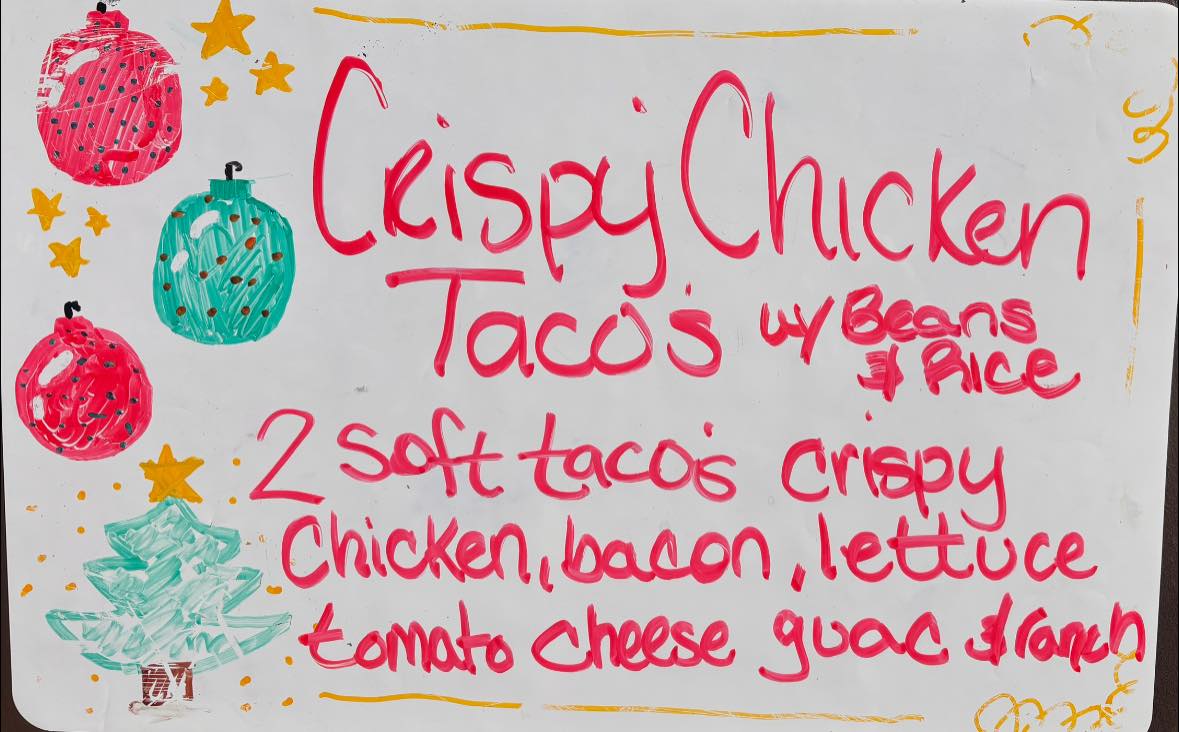 Crispy Chicken
Taco's w/ Beans
& Rice
2 soft taco's crispy
Chicken, bacon, lettuce
tomato cheese guac & ranch